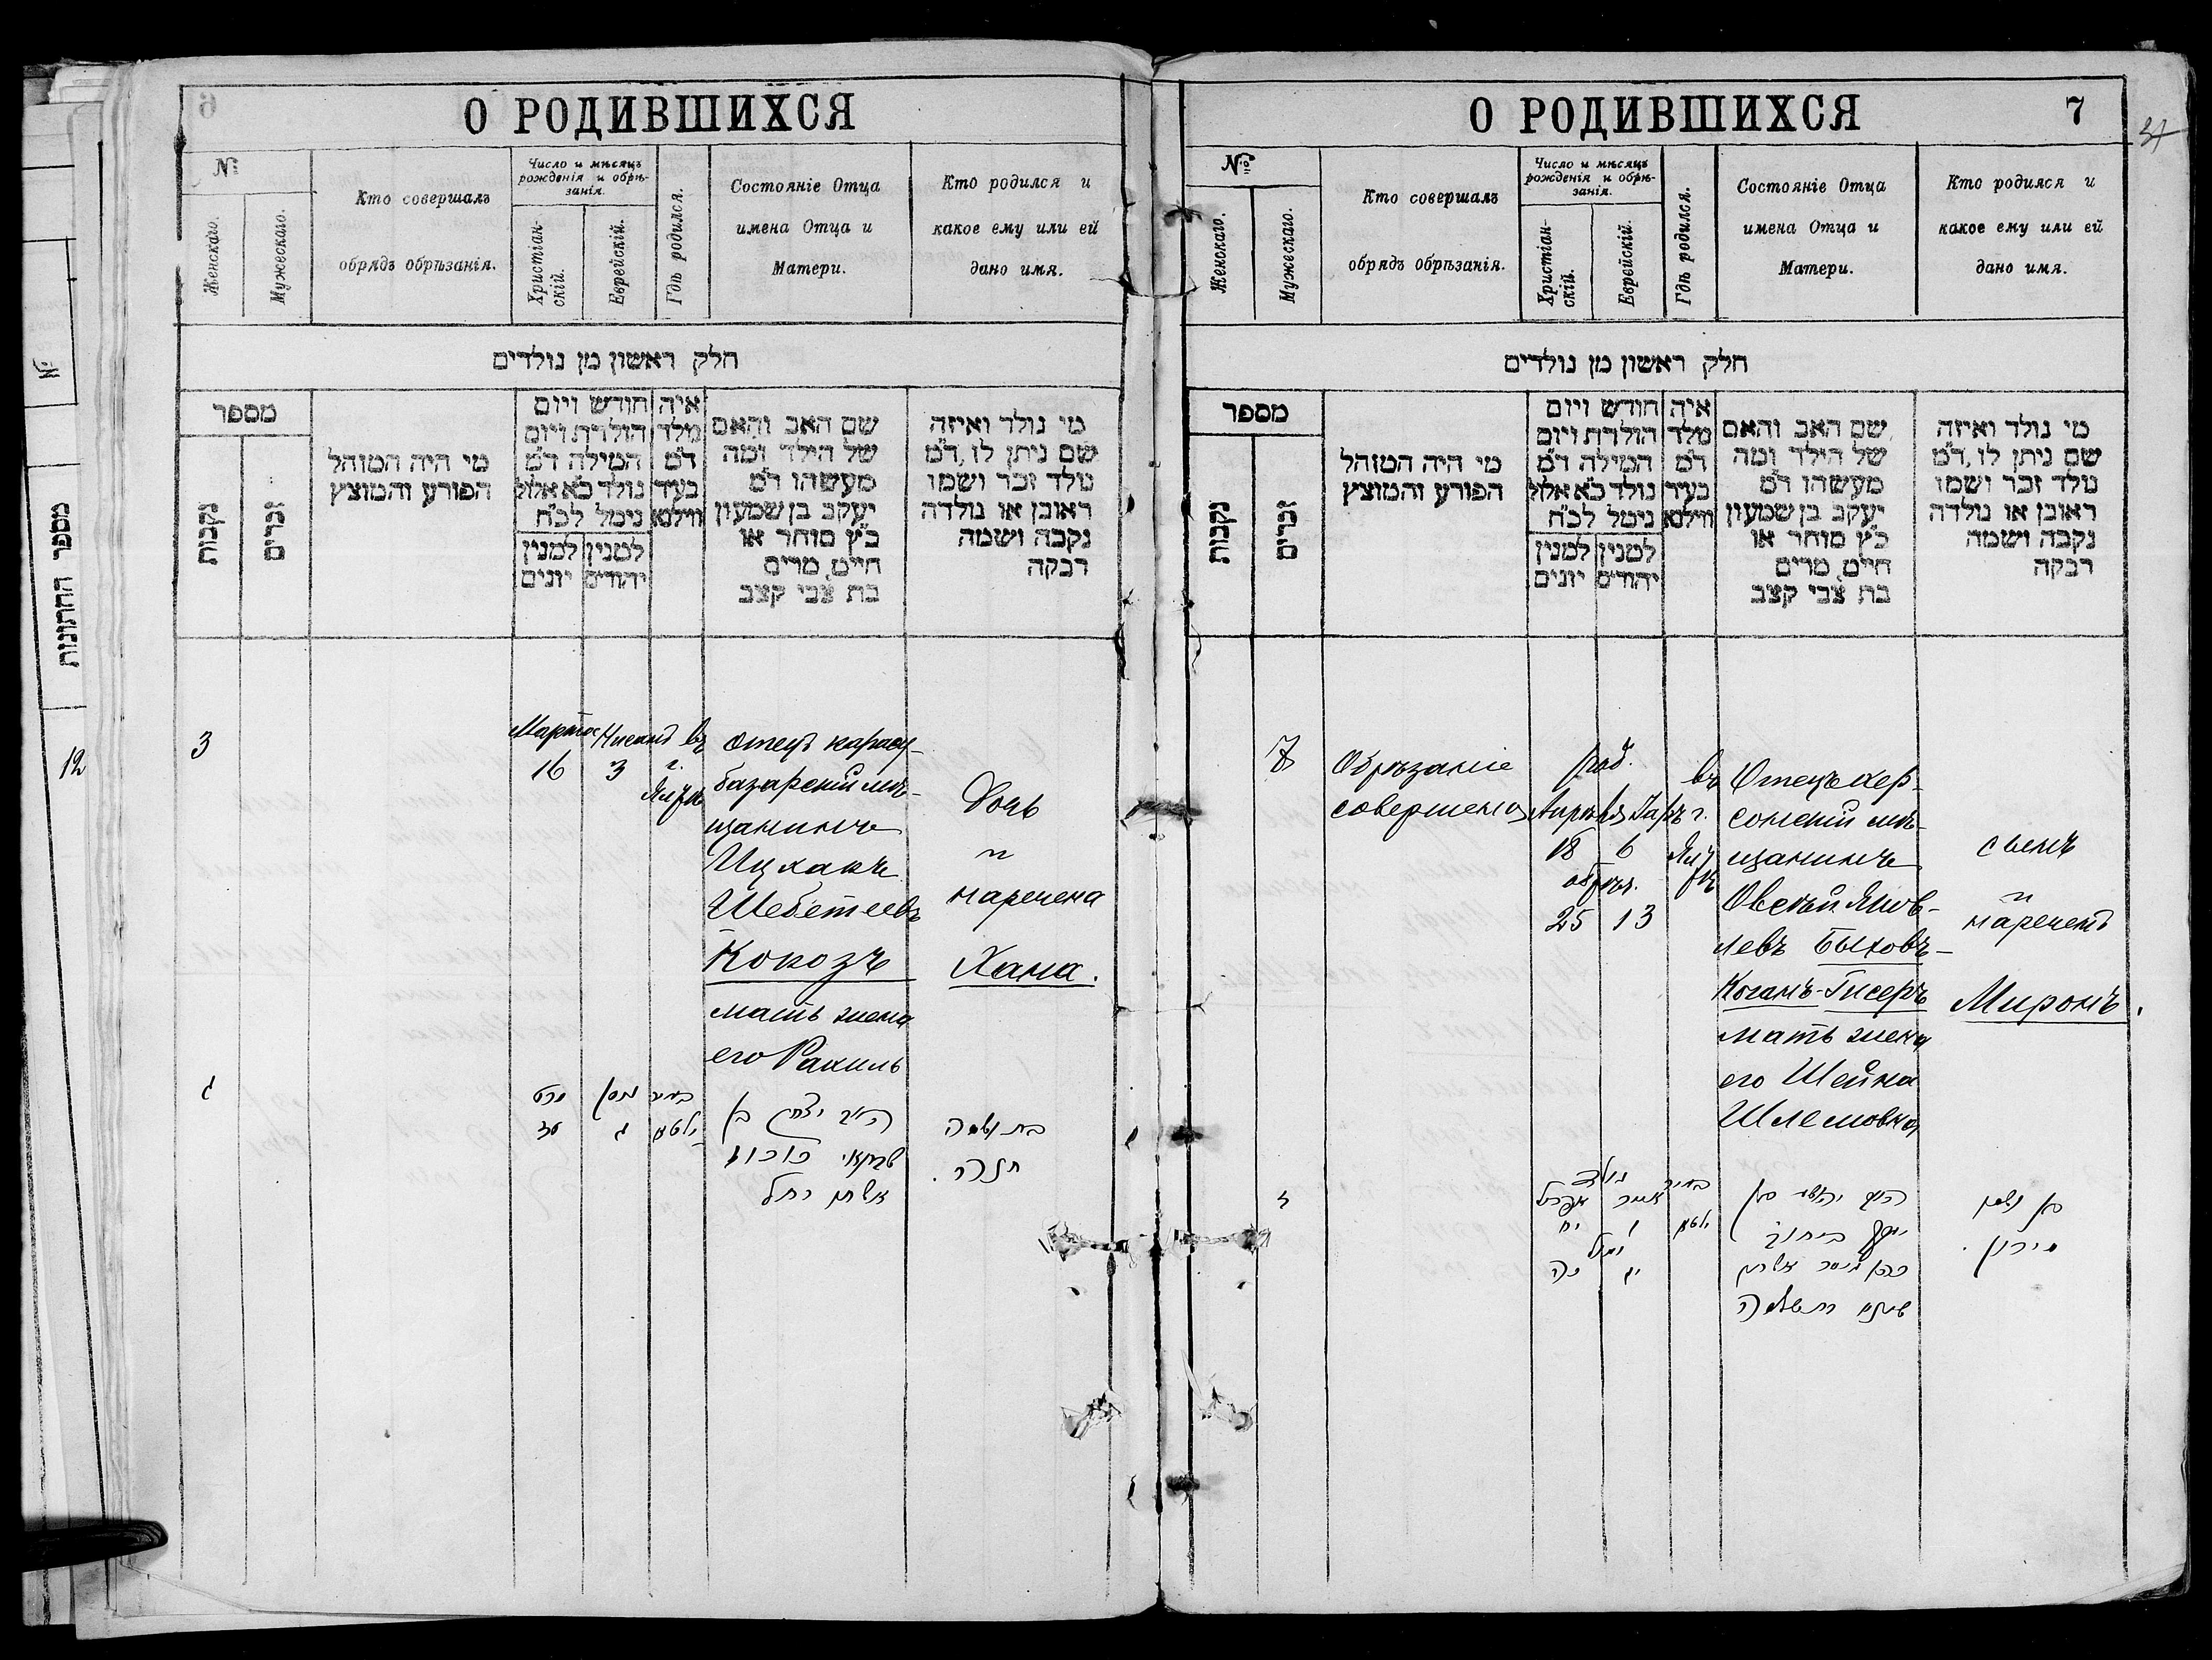 О РОДИВШИХСЯ
№
Женскаго.
Мужескаго.
Кто совершалъ
обрядъ обрѣзанія.
Число и мѣсяцъ
рожденія и обрѣ-
занія.
Христіан-
скій.
Еврейскій.
Гдѣ родился.
Состояніе Отца
имена Отца и
Матери.
Кто родился и
какое ему или ей
дано имя.
חלק ראשון מן נולדים
מספר
נקבות
זכרים
מי היה המוהל
הפורע והמוצץ
חודש ויום
הולדת ויום
המילה ד"מ
נולד כ"א אלול
נימל לכ"ח
למנין
יונים
למנין
יהודים
איה
מלד
ד"מ
בעיר
ווילנא
שם האב והאם
של הילד ומה
מעשהו ד"מ
יעקב בן שמעון
כ"ץ סוחר או
חייט, מרים
בת צבי קצב
מי נולד ואיזה
שם ניתן לו, ד"מ
נולד זכר ושמו
ראובן או נולדה
נקבה ושמה
רבקה
3
Марта
16
Нисанъ
3
въ
г.
Ялтѣ
Отецъ карасу-
базарскій мѣ-
щанинъ
Ицхакъ
Шебетеевъ
Кокозъ
мать жена
его Рахиль
Дочь
и
наречена
Хана.
ג
מרט
טז
ניסן
ג
בעיר
יאלטא
יצחק בן
קוקוז
רחל
בת ושמה
חנה.
О РОДИВШИХСЯ
7
37
№
Женскаго.
Мужескаго.
Кто совершалъ
обрядъ обрѣзанія.
Число и мѣсяцъ
рожденія и обрѣ-
занія.
Христіан-
скій.
Еврейскій.
Гдѣ родился.
Состояніе Отца
имена Отца и
Матери.
Кто родился и
какое ему или ей
дано имя.
חלק ראשון מן נולדים
מספר
נקבות
זכרים
מי היה המוהל
הפורע והמוצץ
חודש ויום
הולדת ויום
המילה ד"מ
נולד כ"א אלול
נימל לכ"ח
למנין
יונים
למנין
יהודים
איה
מלד
ד"מ
בעיר
ווילנא
שם האב והאם
של הילד ומה
מעשהו ד"מ
יעקב בן שמעון
כ"ץ סוחר או
חייט, מרים
בת צבי קצב
מי נולד ואיזה
שם ניתן לו, ד"מ
נולד זכר ושמו
ראובן או נולדה
נקבה ושמה
רבקה
7
Обрѣзаніе
совершено
род.
Апрѣля
18 6
обрѣз.
25 13
въ
г.
Ял-
тѣ
Отецъ хер-
сонскій мѣ-
щанинъ
Овсѣй Яков-
левъ Быховъ-
Коганъ-Гисеръ
мать жена
его Шейна
Шлемовна
сынъ
и
нареченъ
Миронъ.
ז
נולד
אפריל אייר
יח ו
נימול
כה יג
בעיר
יאלטא
יהושע בן
יעקב ביחוב
כהן גיסר
שיינא בת שלמה
בן ושמו
מירון.
מספר החתונות
12
№